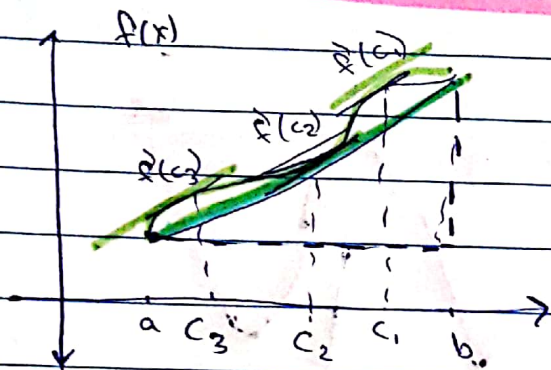 f(x)
f'(c₁)
f'(c₂)
f'(c₃)
a C₃ C₂ C₁ b